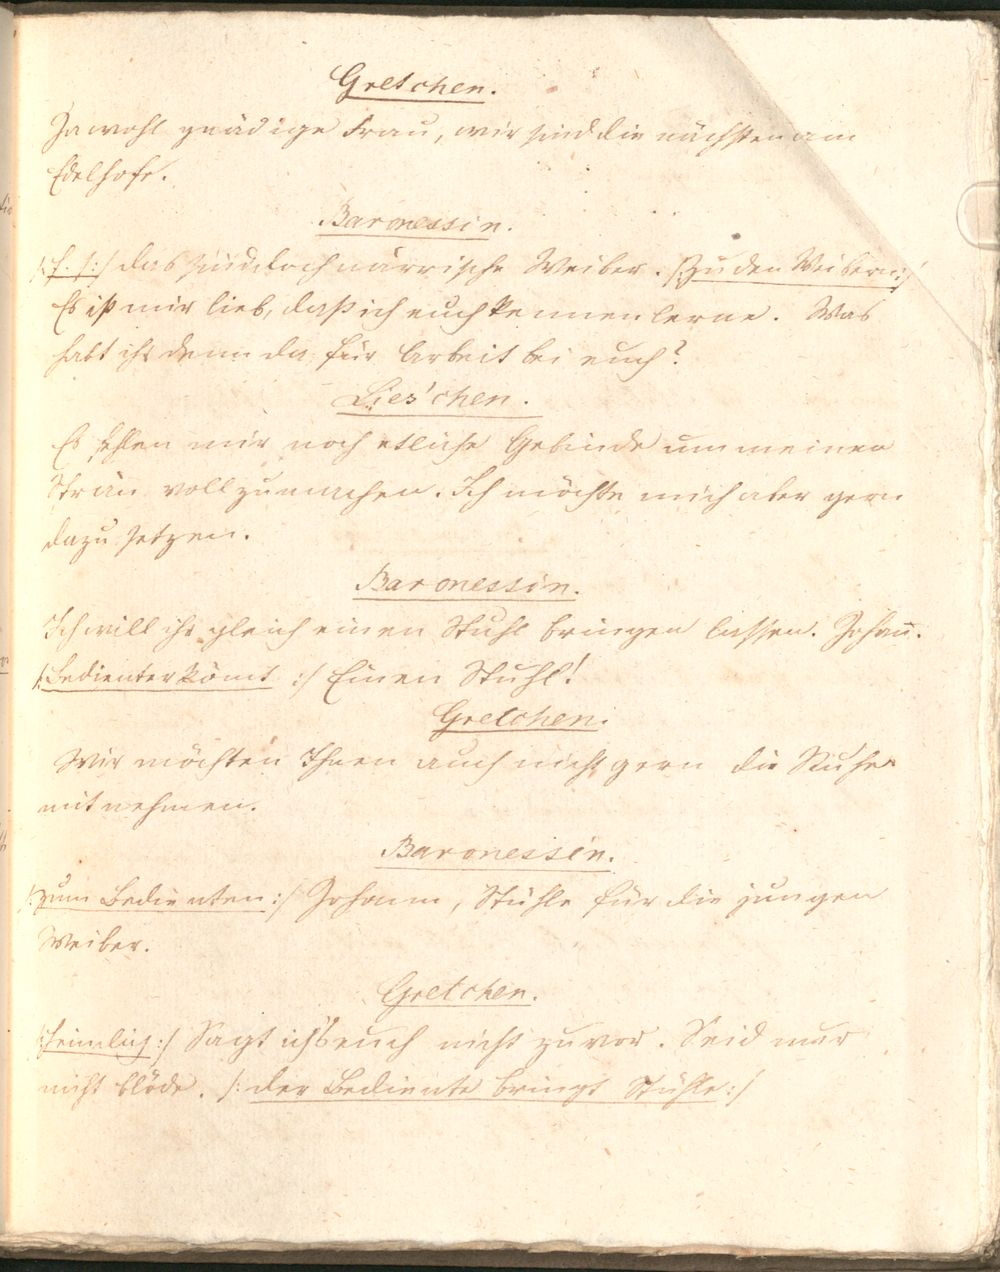 Gretchen.
Jawohl gnädige Frau, wir sind die nächsten am
Edelhofe.
Baronessin.
/:f. f:/ das sind doch närrische Weiber. /:zu den Weibern:/
Es ist mir lieb, daß ich euch kennen lerne. Was
habt ihr denn da für Arbeit bei euch?
Lies'chen.
Es fehlen mir noch etliche Gebinde um meinen
Strän voll zu machen. Ich möchte mich aber gern
dazu setzen.
Baronessin.
Ich will ihr gleich einen Stuhl bringen lassen. Johan̄.
/:Bedienter kömt :/ Einen Stuhl!
Gretchen.
Wir möchten Ihnen auch nicht gern die Ruhe
mit nehmen.
Baronessin.
/:zum Bedienten:/ Johann, Stühle für die jungen
Weiber.
Gretchen.
/:heimlich:/ Sagt ich's euch nicht zuvor. Seid nur
nicht blöde. /: der Bediente bringt Stühle :/